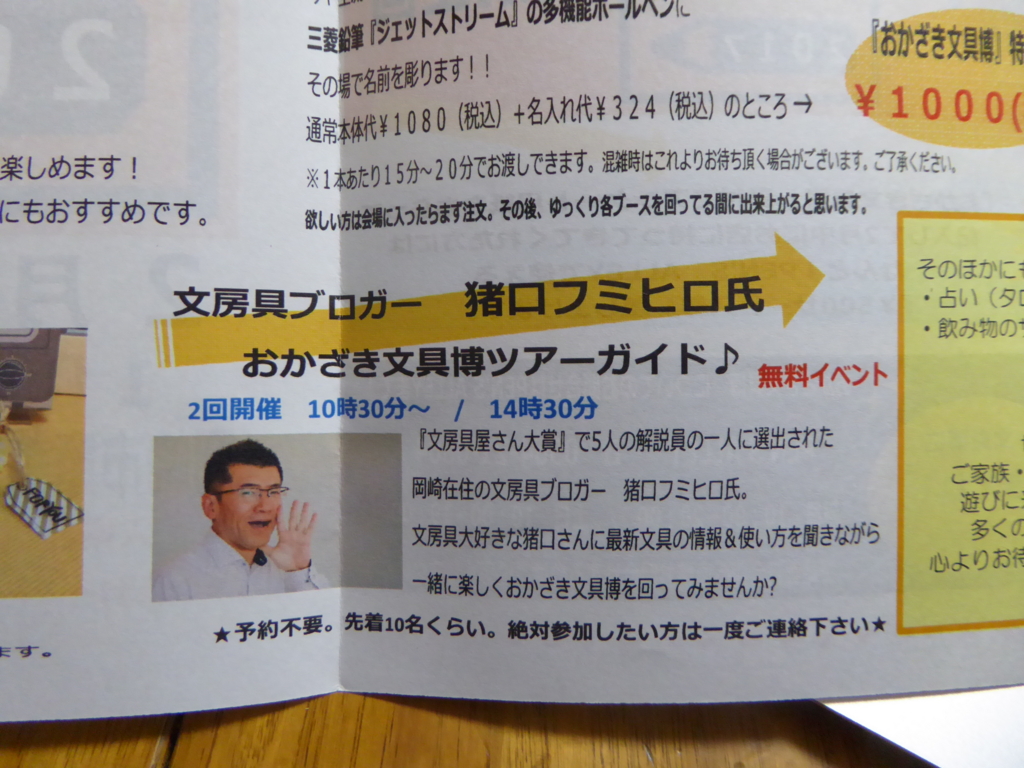 三菱鉛筆『ジェットストリーム』の多機能ボールペンに
その場で名前を彫ります！！
通常本体代￥1080（税込）＋名入れ代￥324（税込）のところ→
『おかざき文具博』特
￥1000(
※1本あたり15分～20分でお渡しできます。混雑時はこれよりお待ち頂く場合がございます。ご了承ください。
欲しい方は会場に入ったらまず注文。その後、ゆっくり各ブースを回ってる間に出来上がると思います。
楽しめます！
にもおすすめです。
文房具ブロガー　猪口フミヒロ氏
おかざき文具博ツアーガイド♪
無料イベント
2回開催　10時30分～　/　14時30分
『文房具屋さん大賞』で5人の解説員の一人に選出された
岡崎在住の文房具ブロガー　猪口フミヒロ氏。
文房具大好きな猪口さんに最新文具の情報＆使い方を聞きながら
一緒に楽しくおかざき文具博を回ってみませんか?
★予約不要。先着10名くらい。絶対参加したい方は一度ご連絡下さい★
ます。
そのほかにも
・占い（タロ
・飲み物の
ご家族・
遊びに
多くの
心よりお待